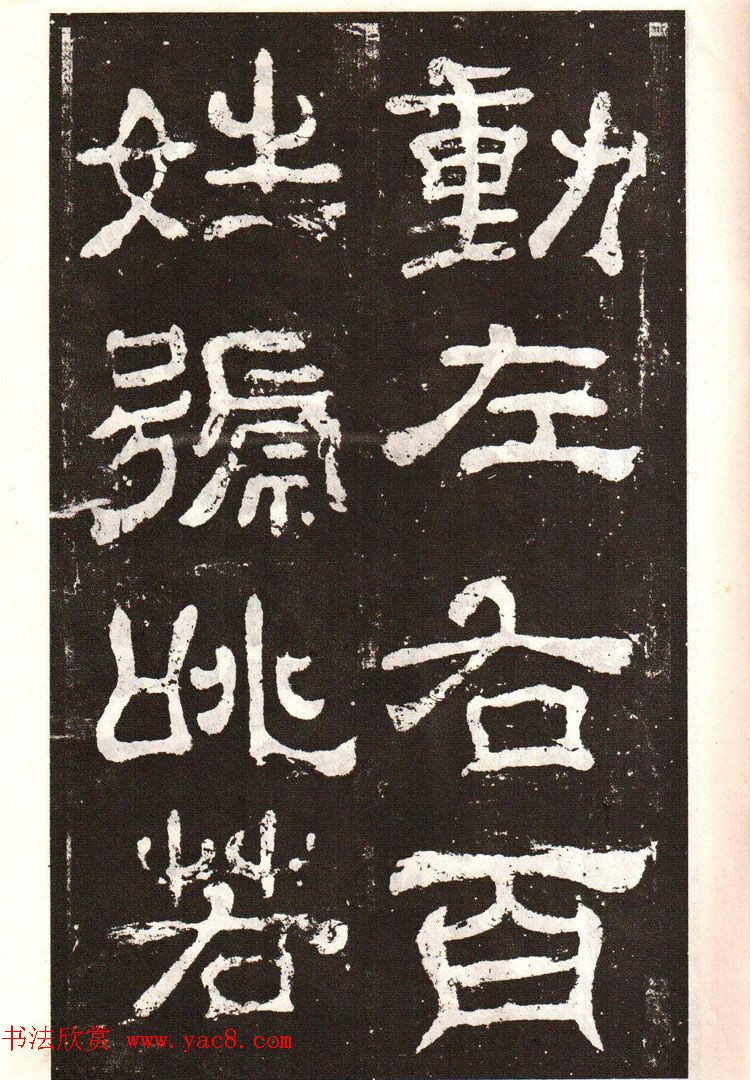 動左右百
姓號咷若
书法欣赏 www.yac8.com